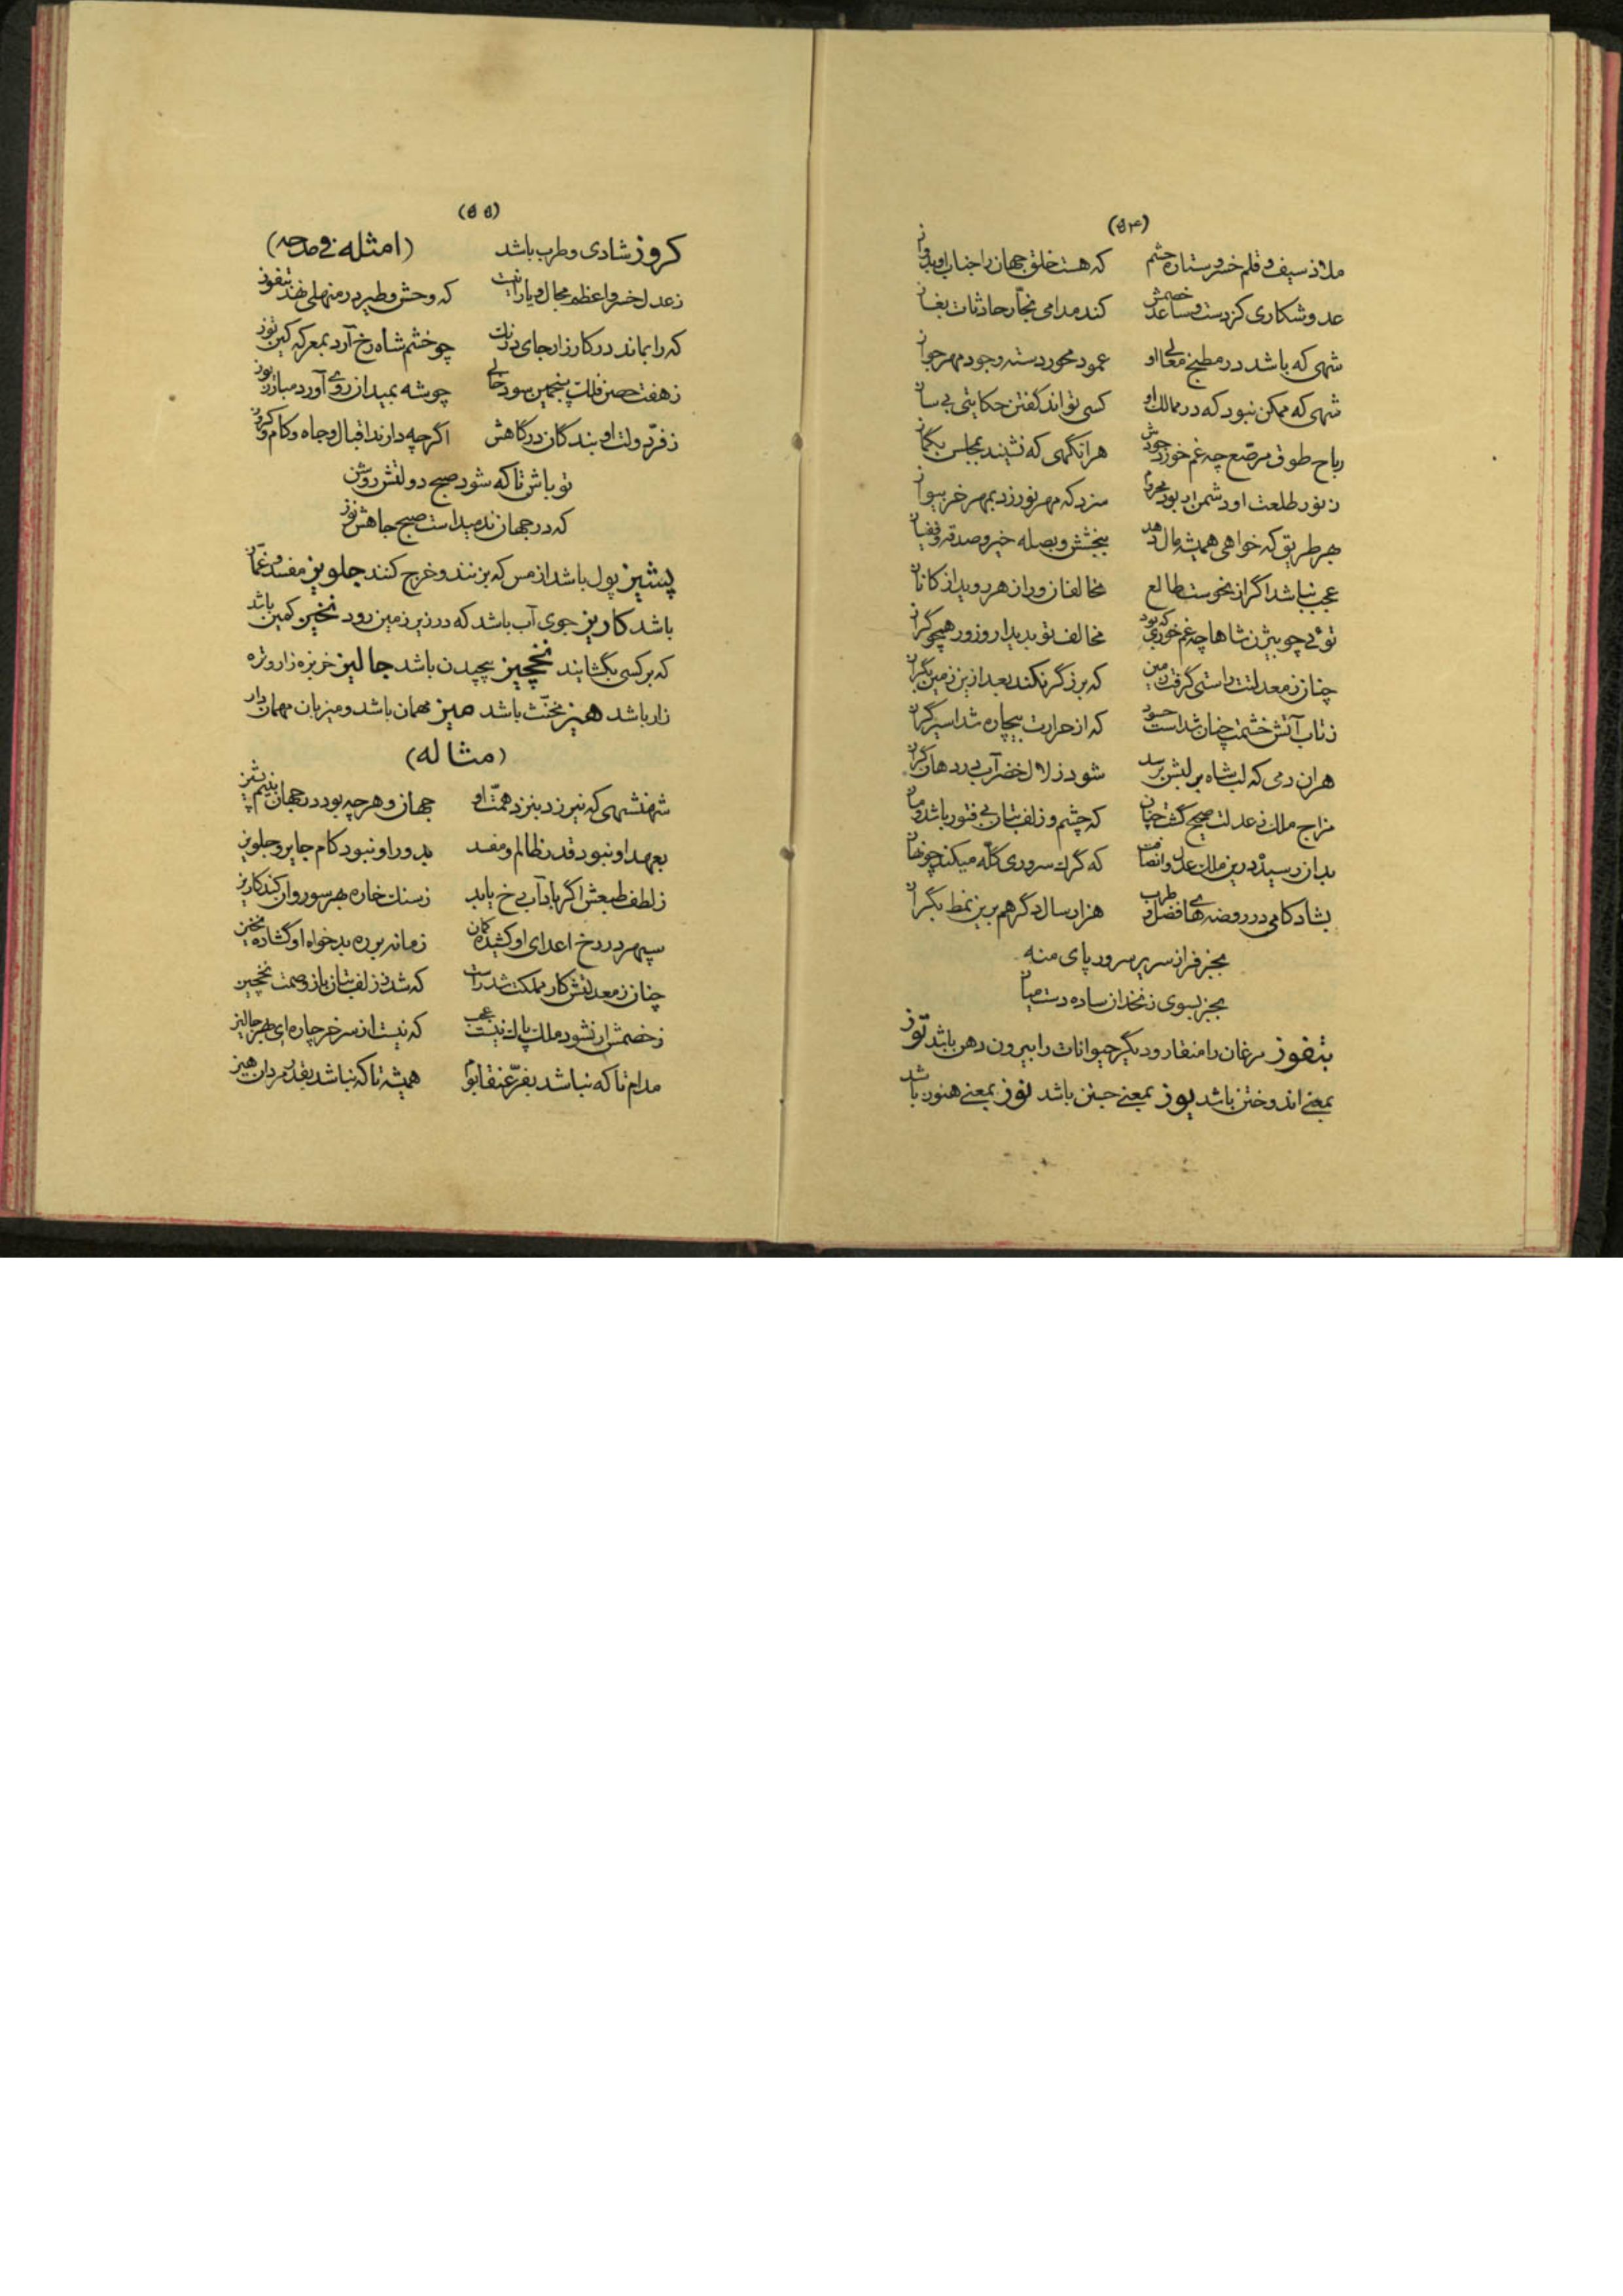 (۵۴)
ملاذ سیف و قلم خسرو ستاره حشم که هست خلق جهان را جناب او
عدو شکاری کز دست و ساعد خصمش کند مدامی نجّار حادثات
شهی که باشد در مطبخ معالی او عمود محور دسته وجود مهر
شهی که ممکن نبود که در ممالک او کسی تواند گفتن حکایتی بی سان
طوق مرصّع چه غم خورد جودش هر انگهی که نشیند بمجلس بگمان
ز نور طلعت او دشمن ار بود محروم سزد که مهر نورزد بمهر خر
بهر طریق که خواهی همیشه مال دهد ببخشش و بصله خیر و صدقه و
عجب نباشد اگر از نحوست طالع مخالفان ورا
توئی چو بیژن شاها چه غم خوری که بود مخالف تو بدیدار و زور همچو گراز
چنان ز معدلتت راستی گرفت زمین که برزگر نکند بعد ازین زمین
ز تاب آتش خشمت چنان شداست حسود که از حرارت بیچاره شد اسیر
هر ان دمی که لب شاه بر لبش برسد شود زلال خضر آب در دهان
مزاج ملک ز عدلت صحیح گشت چنان که چشم و زلف بتان بی فتور باشد و
بدان رسید درین ملک عدل و انصافت که گرگ سروری گلّه میکند چو
بشادکامی در روضه های فضل و طرب هزار سال دگر هم برین نمط
بجز فراز سریر سرور پای منه
بجز بسوی زنخدان ساده دست
بتفوز مرغان را منقار و دیگر حیوانات را بیرون دهن باشد توز
بمعنی اندوختن باشد یوز بمعنی جستن باشد نوز بمعنی هنوز باشد
(۵۵)
کروز شادی و طرب باشد (امثله فی مدحه)
ز عدل خسرو اعظم مجال و یارا نیست که وحش و طیر در منهلی نهند بتفوز
که را بماند در کارزار جای درنگ چو خشم شاه رخ آرد بمعرکه کین توز
ز هفت حصن فلک پنجمین سود خالی چو شه بمیدان روی آورد مبارز یوز
ز فرّ دولت او بندگان درگاهش اگرچه دارند اقبال و جاه و کام و کروز
تو باش تا که شود صبح دولتش روشن
که در جهان ندمیداست صبح جاهش نوز
پشیز پول باشد از مس که بزنند و خرج کنند جلویز مفسد و غمّاز
باشد کاریز جوی آب باشد که در زیر زمین رود نخیز کمین باشد
که بر کسی بگشایند نخچیز پیچیدن باشد جالیز خربزه زار و تره
زار باشد هیز مخنّث باشد میز مهمان باشد و میزبان مهمان دار
(مثاله)
شهنشهی که نیرزد بنزد همّت او جهان و هرچه بود در جهان بنیم پشیز
بعهد او نبود قدر ظالم و مفسد بدور او نبود کام جابر و جلویز
ز لطف طبعش اگر باد آب رخ یابد ز سنگ خاره بهر سو روان کند کاریز
سپهر در رخ اعدای او کشیده کمان زمانه بر ره بدخواه او گشاده نخیز
چنان ز معدلتش کار مملکت شد راست که شد ز زلف بتان باز وصمت نخچیز
ز خصمش ار نشود ملک پاک نیست عجب که نیست از سر خر چاره ای بهر جالیز
مدام تا که نباشد بفرّ عنقا بوم همیشه تا که نباشد بقدر مردان هیز